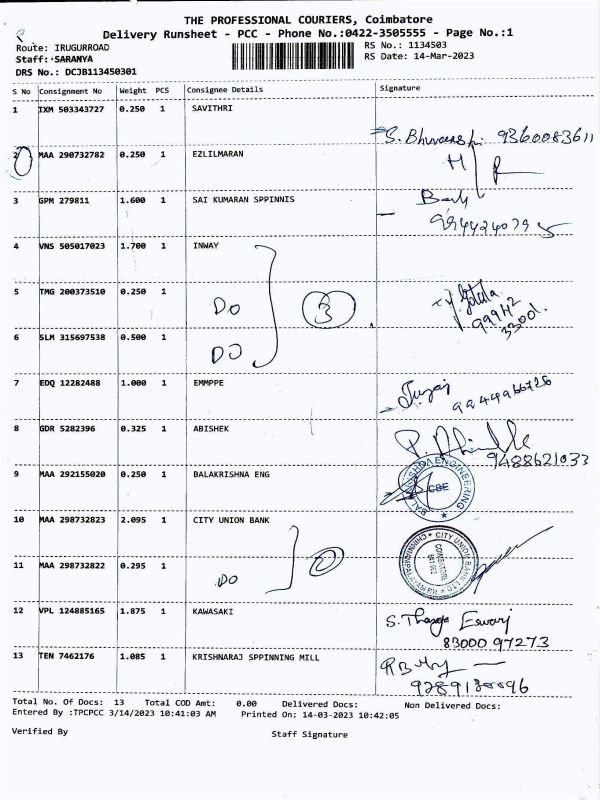 THE PROFESSIONAL COURIERS, Coimbatore
Delivery Runsheet - PCC - Phone No.:0422-3505555 - Page No.:1
Route: IRUGURROAD
RS No.: 1134503
Staff: SARANYA
RS Date: 14-Mar-2023
DRS No.: DCJB113450301
S No Consignment No Weight PCS Consignee Details Signature
1 IXM 503343727 0.250 1 SAVITHRI
9360083611
2 MAA 290732782 0.250 1 EZLILMARAN
3 GPM 279811 1.600 1 SAI KUMARAN SPPINNIS
4 VNS 505017023 1.700 1 INWAY
5 TMG 200373510 0.250 1 DO 3
6 SLM 315697538 0.500 1 DO
7 EDQ 12282488 1.000 1 EMMPPE
9944966726
8 GDR 5282396 0.325 1 ABISHEK
9488621033
9 MAA 292155020 0.250 1 BALAKRISHNA ENG
CBE
10 MAA 298732823 2.095 1 CITY UNION BANK
CITY UNION BANK LTD
COIMBATORE
11 MAA 298732822 0.295 1 DO
12 VPL 124885165 1.875 1 KAWASAKI
83000 97273
13 TEN 7462176 1.085 1 KRISHNARAJ SPPINNING MILL
Total No. Of Docs: 13 Total COD Amt: 0.00 Delivered Docs: Non Delivered Docs:
Entered By :TPCPCC 3/14/2023 10:41:03 AM Printed On: 14-03-2023 10:42:05
Verified By Staff Signature